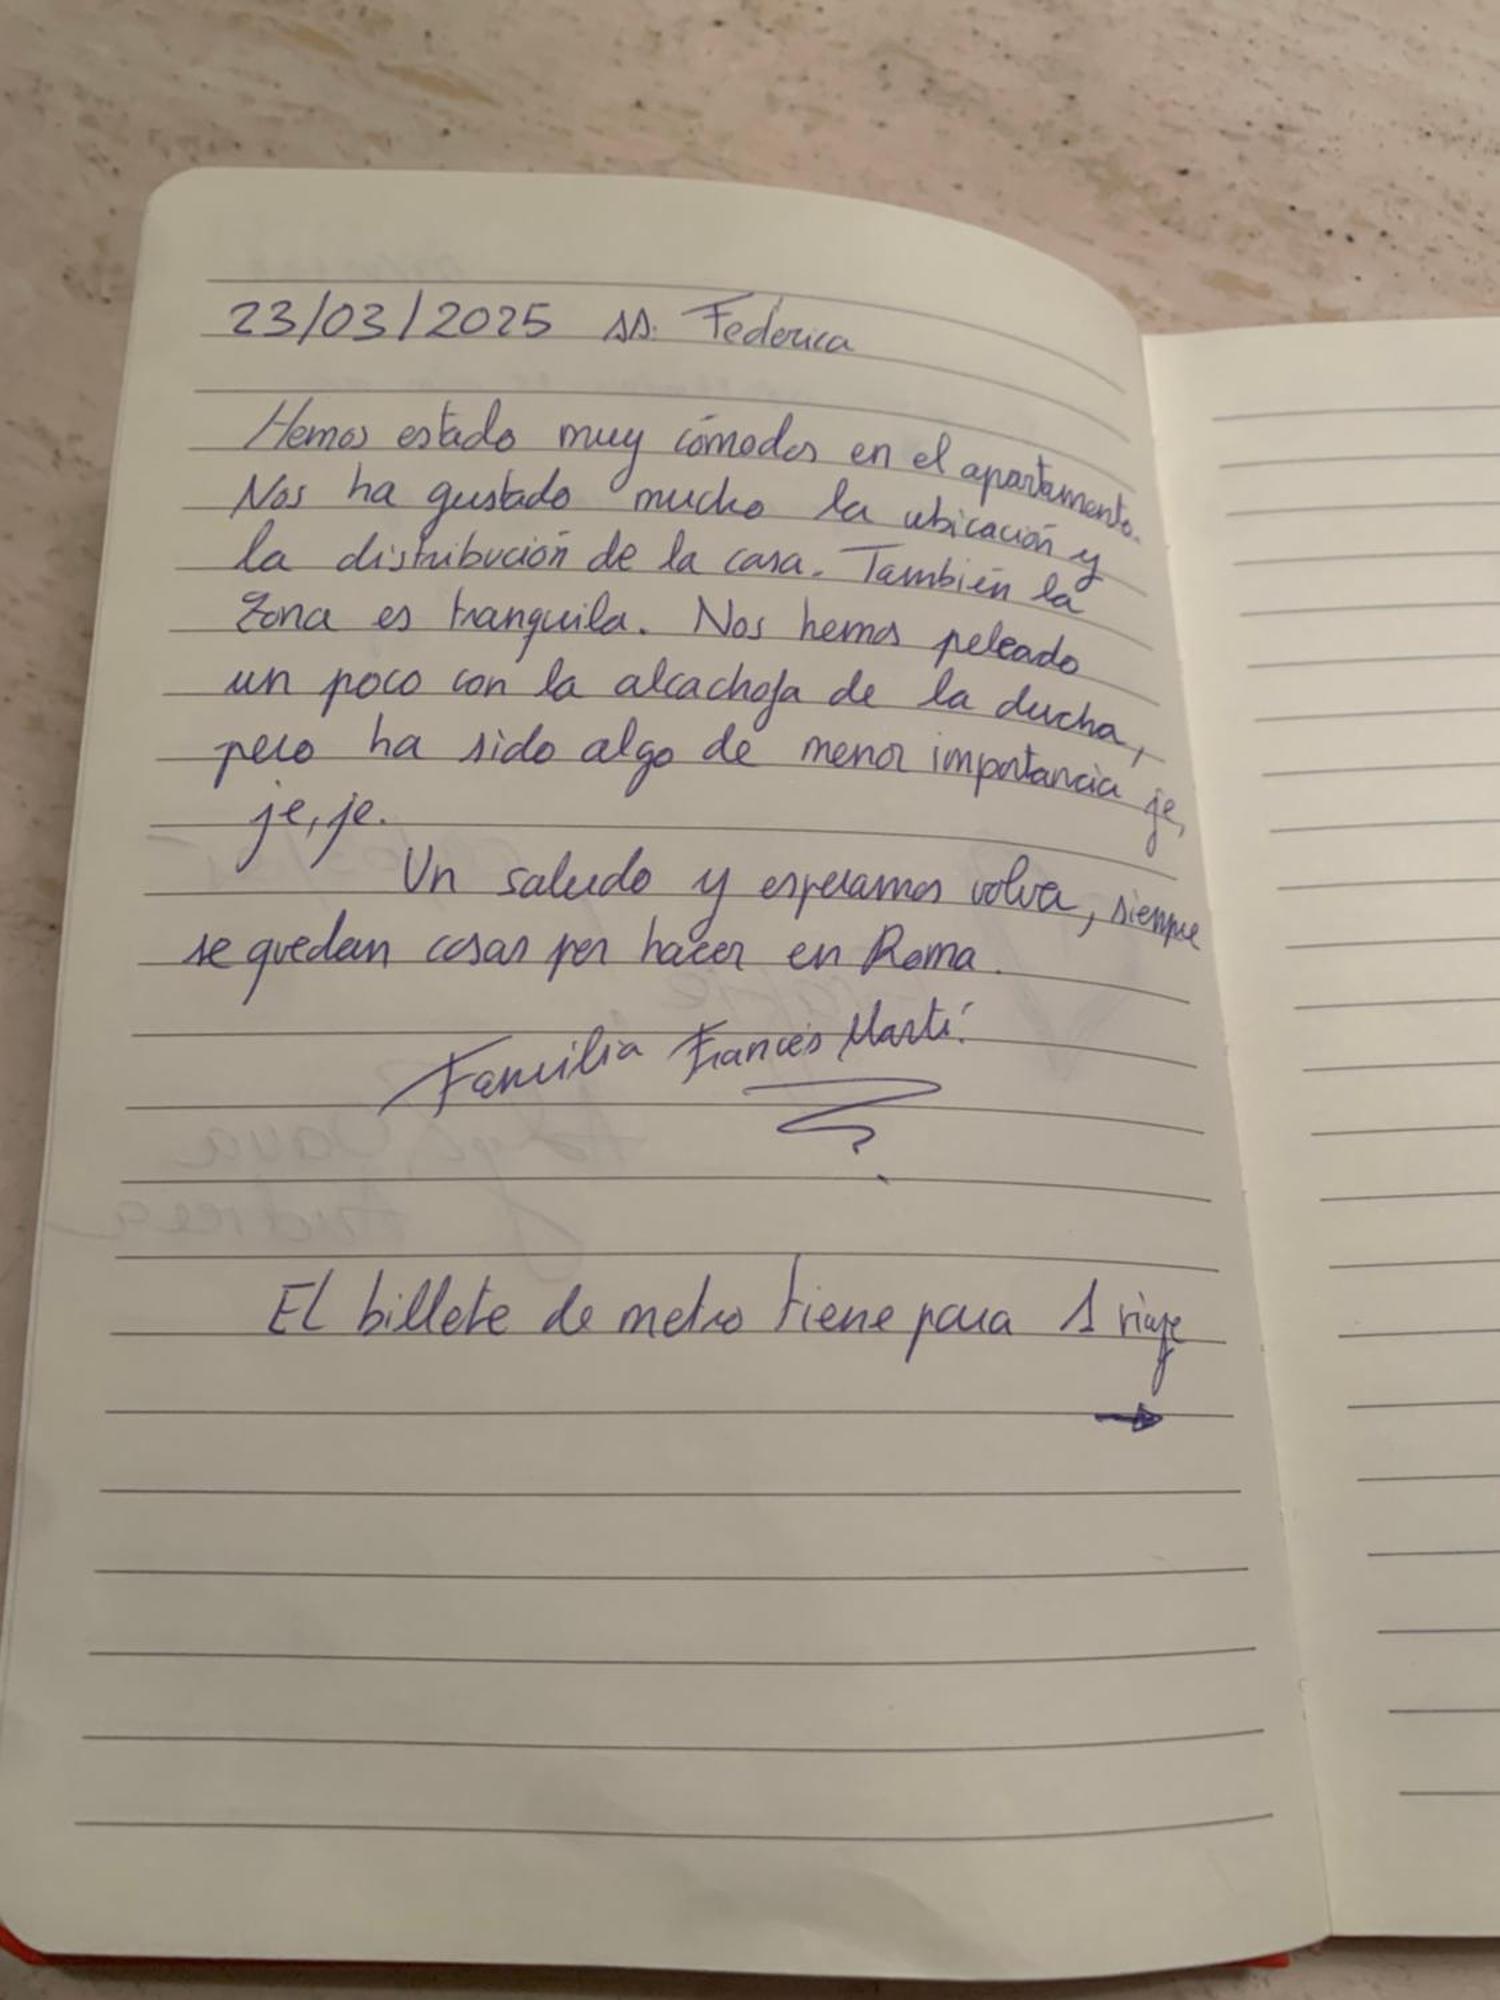 23/03/2025 ss. Federica
Hemos estado muy cómodos en el apartamento.
Nos ha gustado mucho la ubicación y
la distribución de la casa. También la
zona es tranquila. Nos hemos peleado
un poco con la alcachofa de la ducha,
pero ha sido algo de menor importancia je,
je, je.
Un saludo y esperamos volver, siempre
se quedan cosas por hacer en Roma.
Familia Francés Martí.
El billete de metro tiene para 1 viaje
→